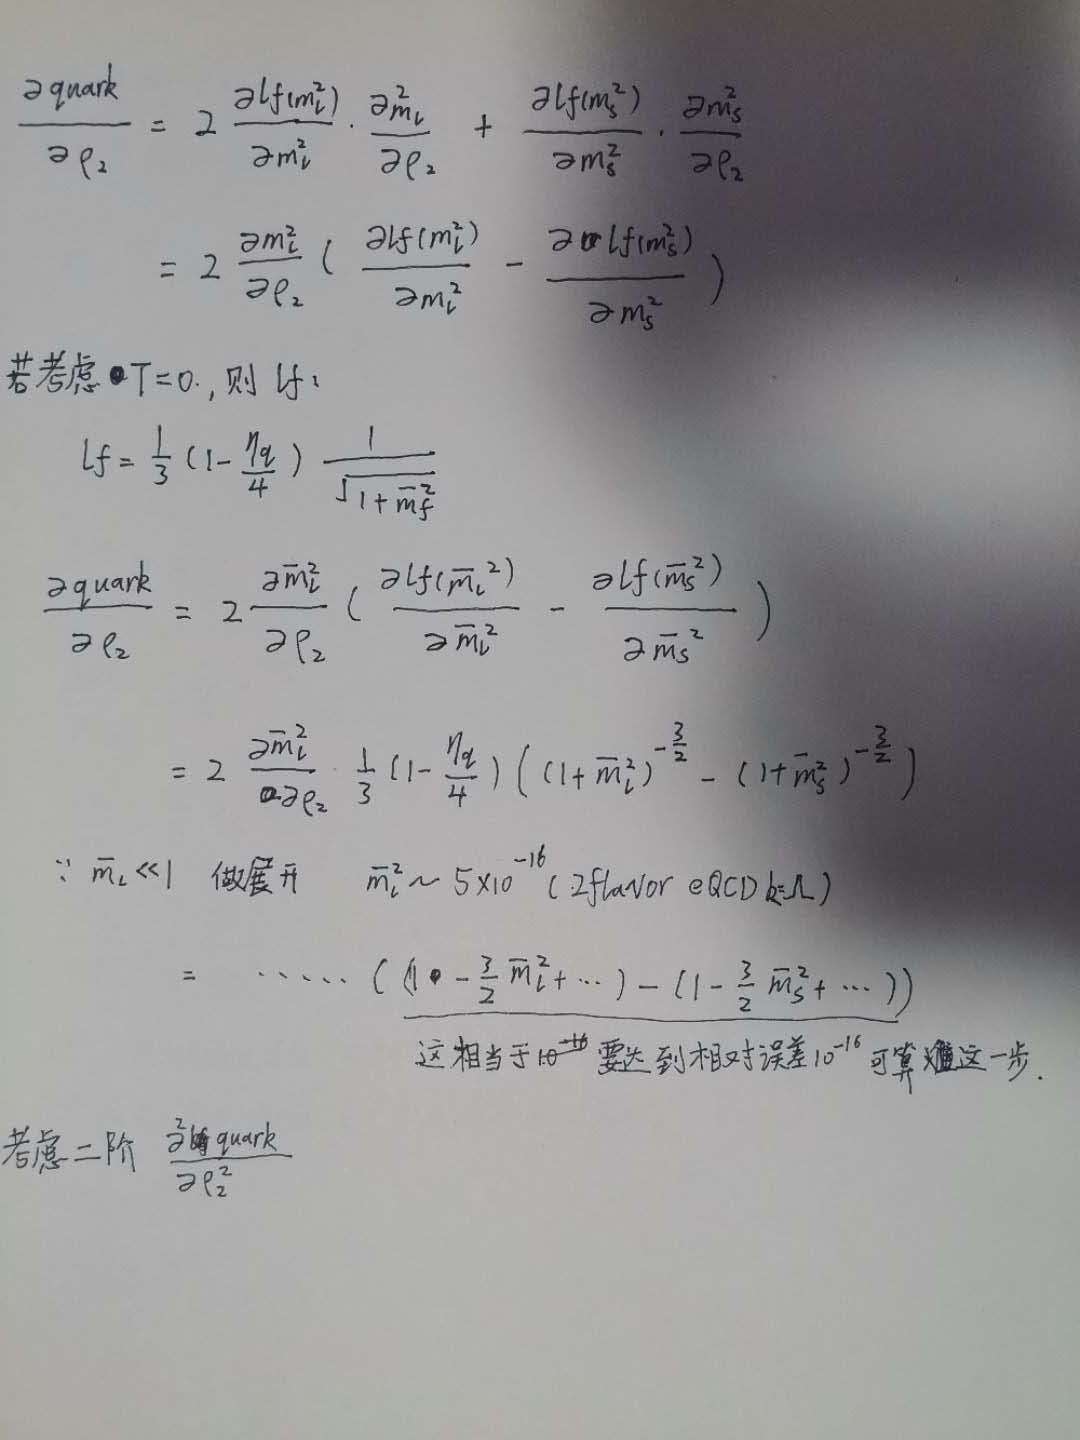 ∂quark/∂ρ₂ = 2 ∂lf(m_l²)/∂m_l² · ∂m_l²/∂ρ₂ + ∂lf(m_s²)/∂m_s² · ∂m_s²/∂ρ₂
= 2 ∂m_l²/∂ρ₂ ( ∂lf(m_l²)/∂m_l² - ∂lf(m_s²)/∂m_s² )
若考虑 T=0, 则 lf:
lf = 1/3 (1 - η_q/4) 1/√(1+m̄_f²)
∂quark/∂ρ₂ = 2 ∂m̄_l²/∂ρ₂ ( ∂lf(m̄_l²)/∂m̄_l² - ∂lf(m̄_s²)/∂m̄_s² )
= 2 ∂m̄_l²/∂ρ₂ · 1/3 (1 - η_q/4) ( (1+m̄_l²)^(-3/2) - (1+m̄_s²)^(-3/2) )
∵ m̄_l ≪ 1 做展开 m̄_l² ~ 5×10⁻¹⁶ (2flavor eQCD k=Λ)
= ······ ( (1 - 3/2 m̄_l² + ···) - (1 - 3/2 m̄_s² + ···) )
这相当于 要达到相对误差10⁻¹⁶ 可算 这一步.
考虑二阶 ∂²quark/∂ρ₂²